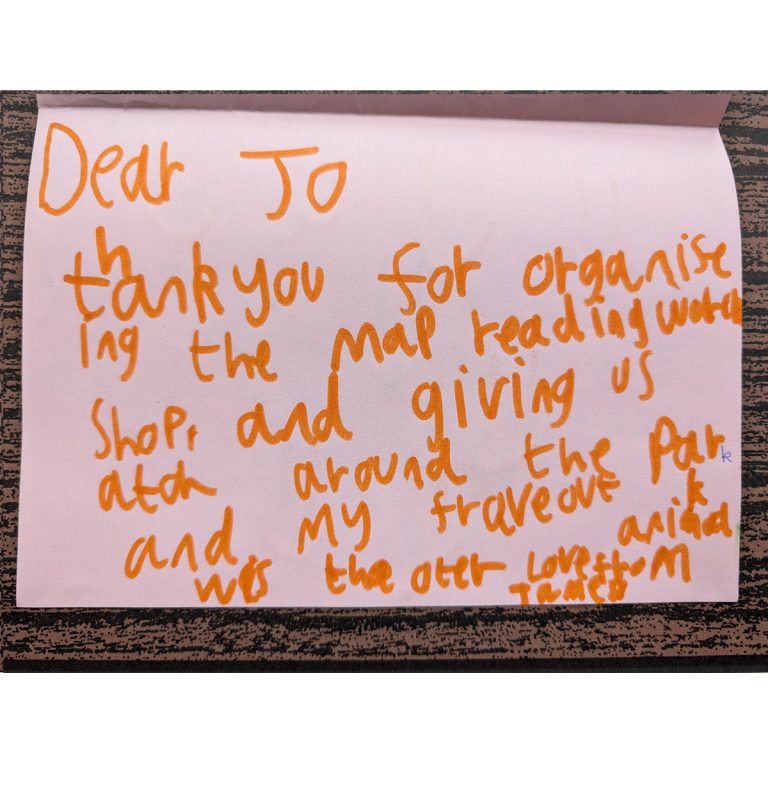 Dear Jo
thankyou for organise
ing the map reading
shop, and giving us
around the Park
and my fraveout animal
was the oter Love from
James